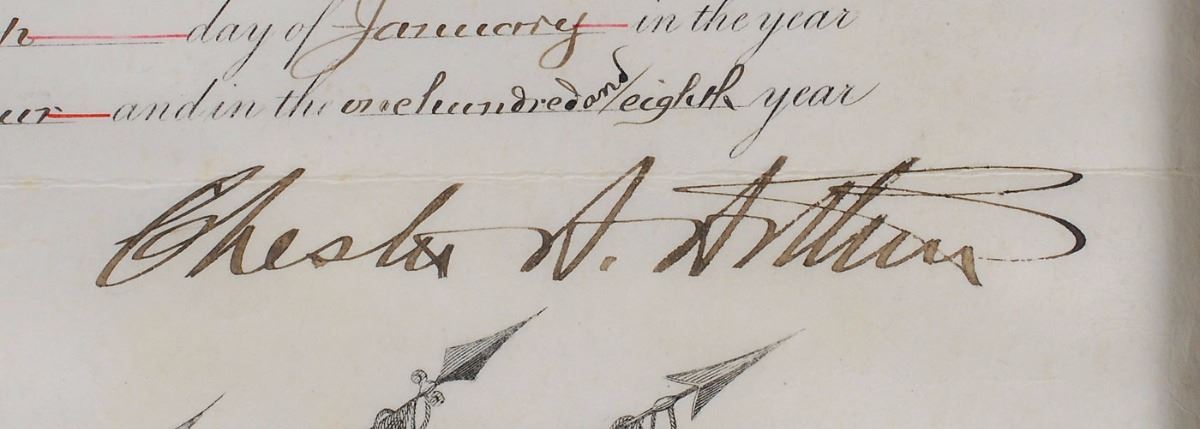 day of January in the year
and in the one hundred and eighth year
Chester A. Arthur